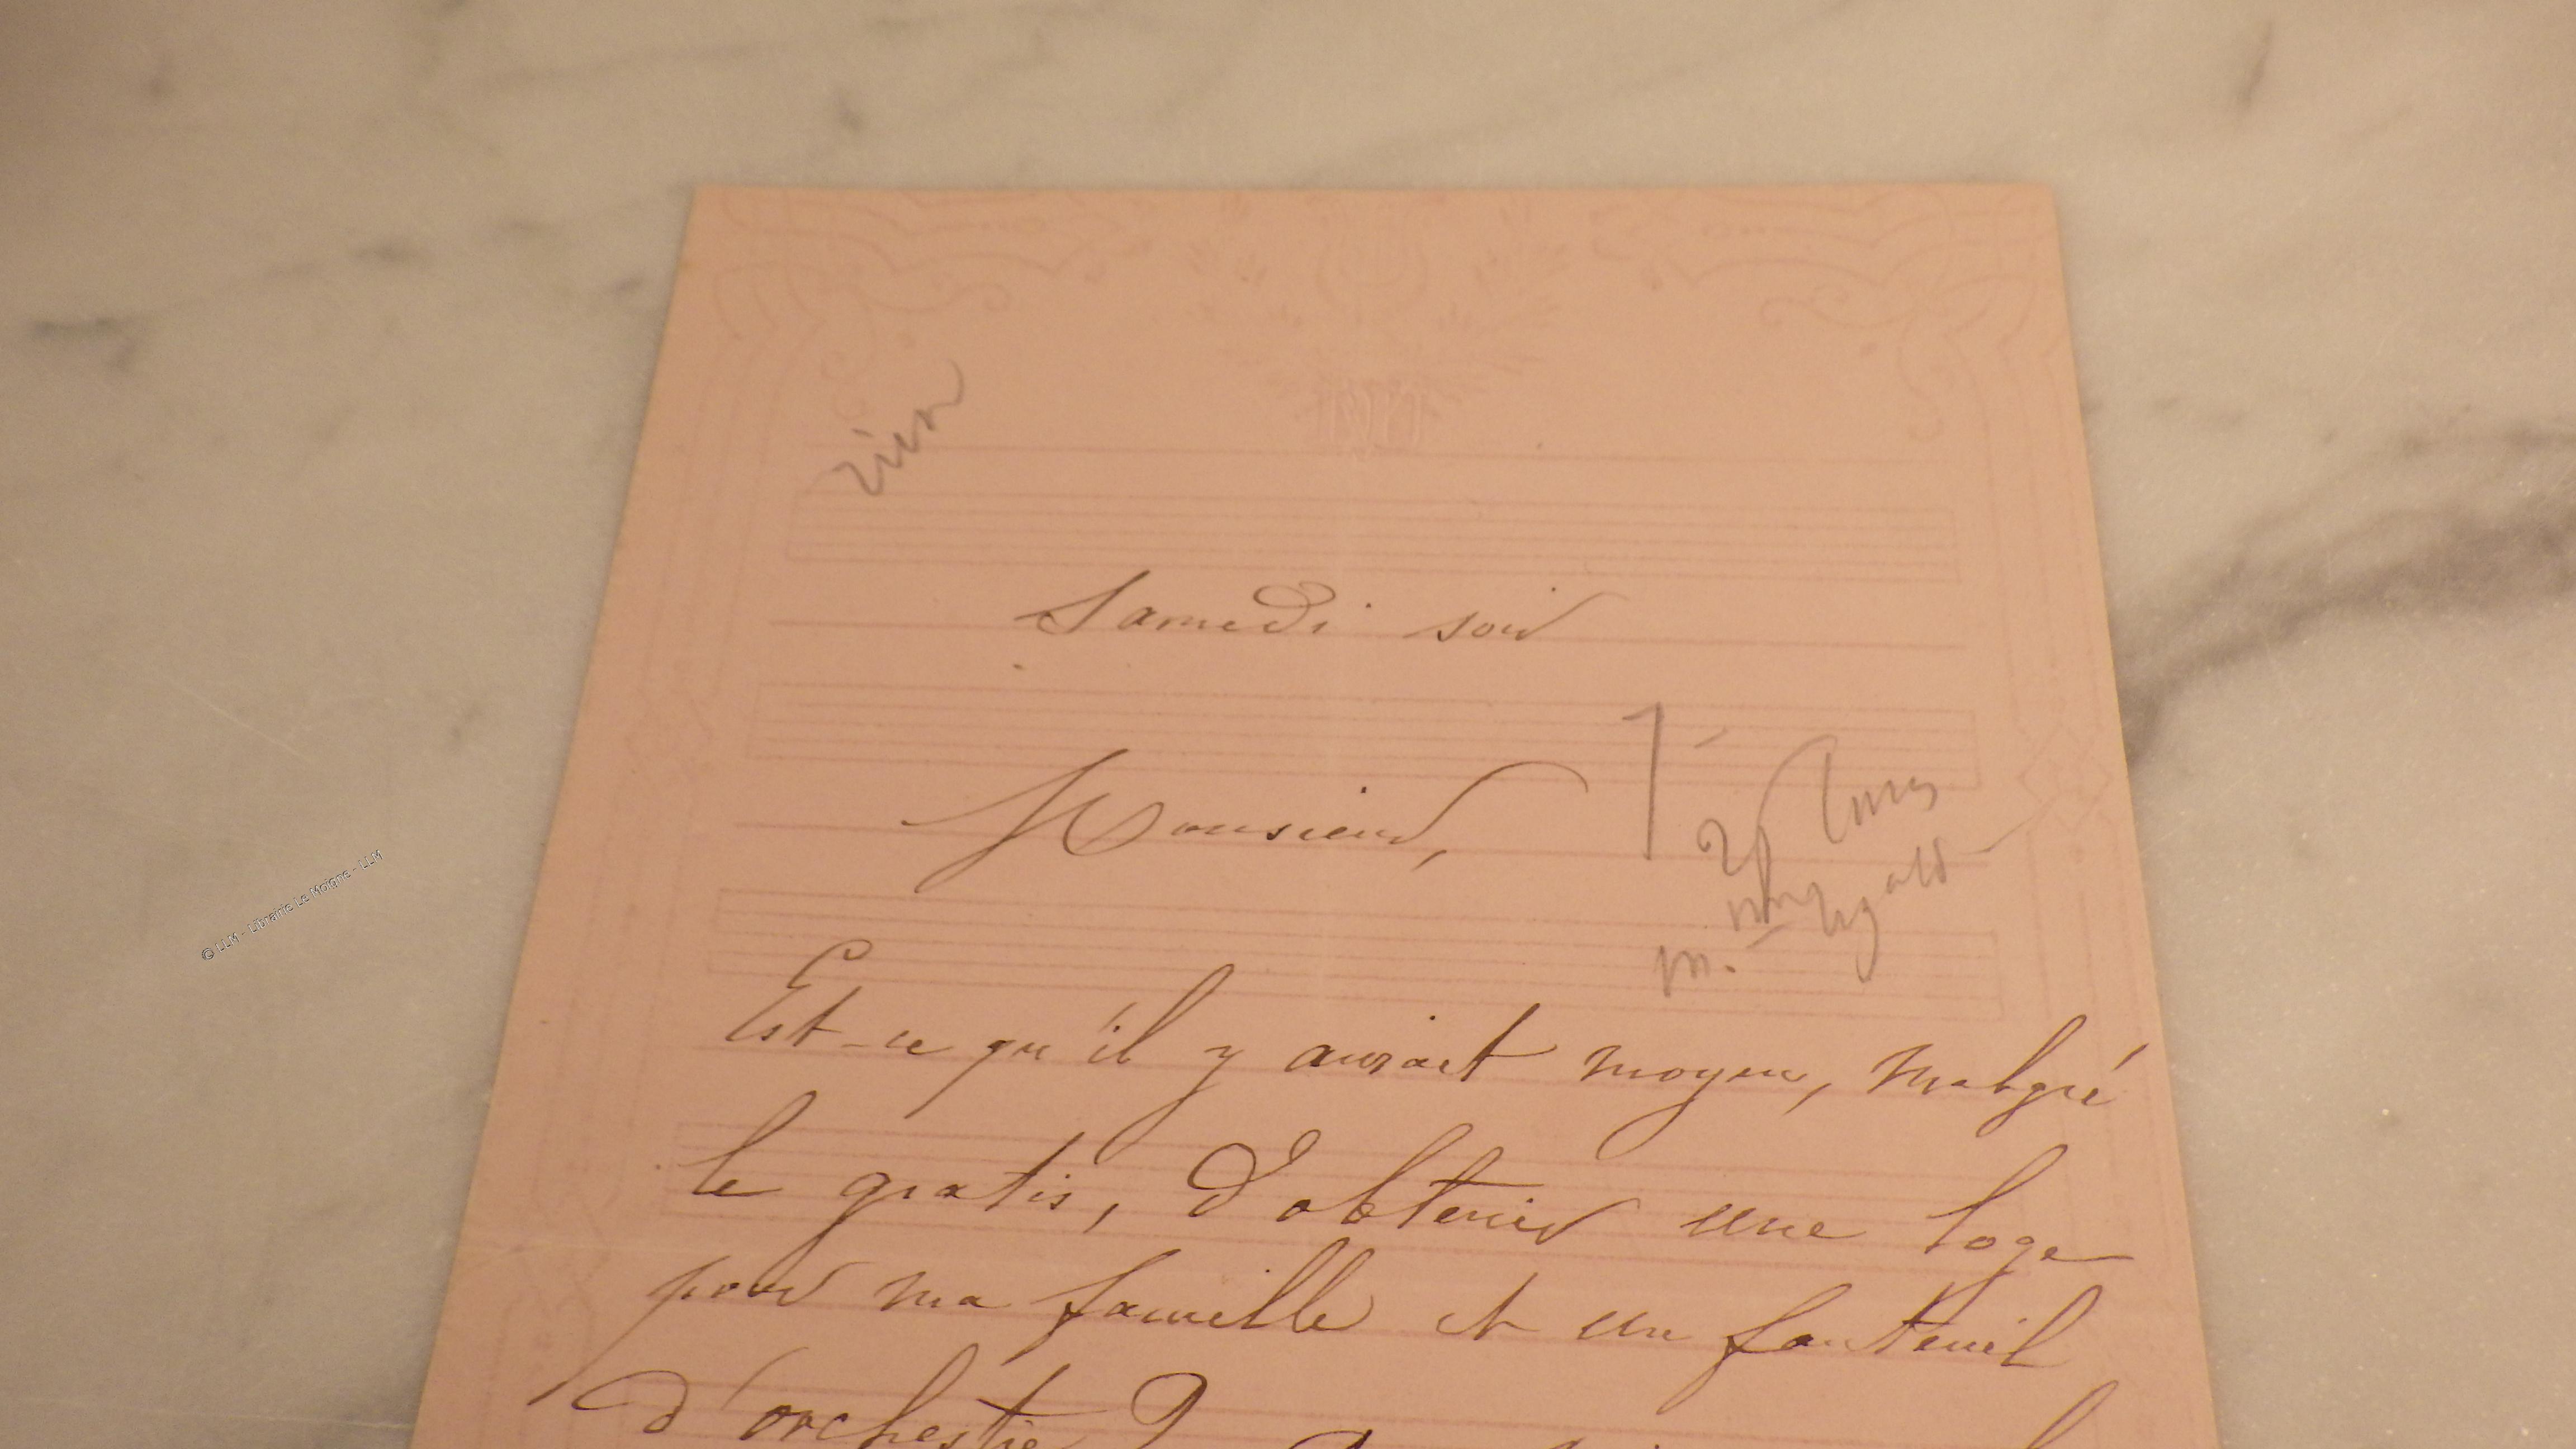 rien
Samedi soir
Monsieur,
Est-ce qu'il y aurait moyen, malgré
le gratis, d'obtenir une loge
pour ma famille et un fauteuil
d'orchestre?
© LLM - Librairie Le Moigne - LLM